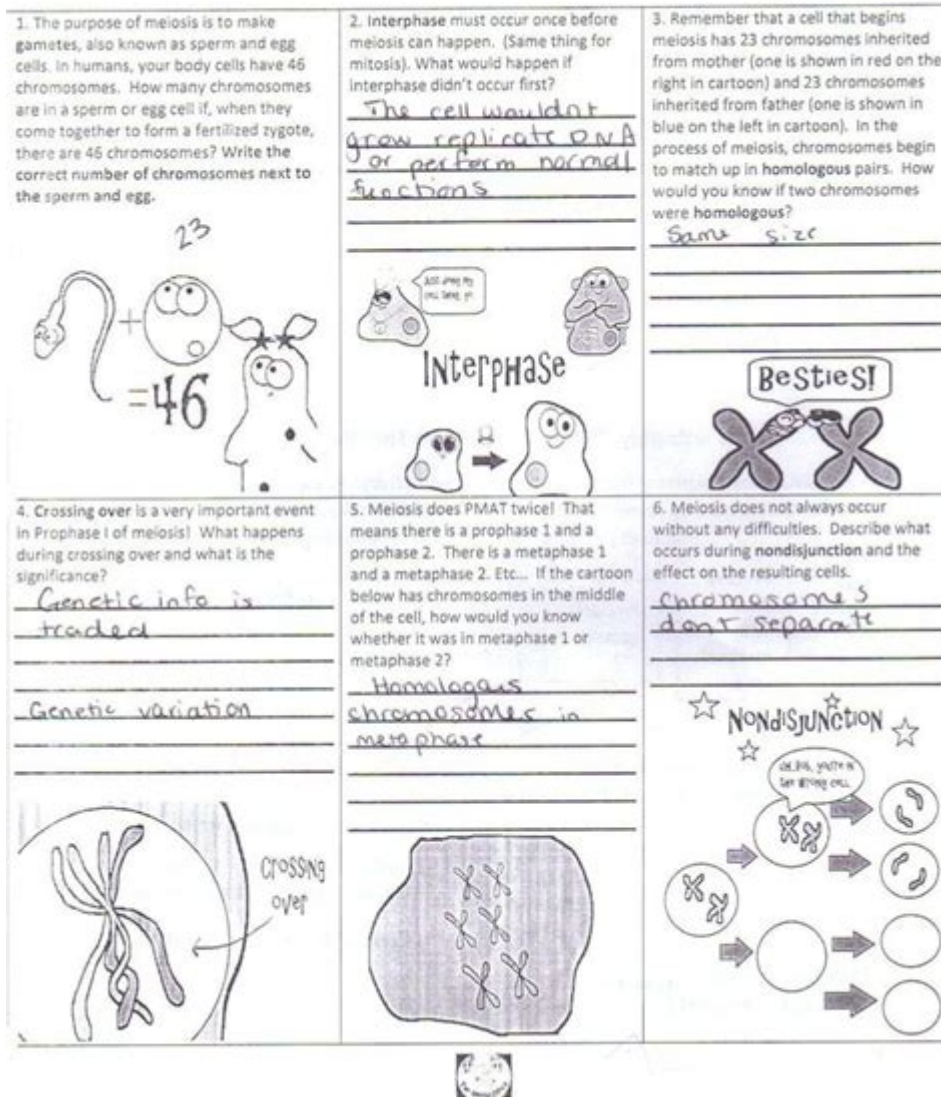 1. The purpose of meiosis is to make
gametes, also known as sperm and egg
cells. In humans, your body cells have 46
chromosomes. How many chromosomes
are in a sperm or egg cell if, when they
come together to form a fertilized zygote,
there are 46 chromosomes? Write the
correct number of chromosomes next to
the sperm and egg.
23
+
=46
2. Interphase must occur once before
meiosis can happen. (Same thing for
mitosis). What would happen if
interphase didn't occur first?
The cell wouldnt
grow replicate DNA
or perform normal
functions
INterpHase
3. Remember that a cell that begins
meiosis has 23 chromosomes inherited
from mother (one is shown in red on the
right in cartoon) and 23 chromosomes
inherited from father (one is shown in
blue on the left in cartoon). In the
process of meiosis, chromosomes begin
to match up in homologous pairs. How
would you know if two chromosomes
were homologous?
Same size
BeSties!
4. Crossing over is a very important event
in Prophase I of meiosis! What happens
during crossing over and what is the
significance?
Genetic info is
traded
Genetic variation
Crossing
over
5. Meiosis does PMAT twice! That
means there is a prophase 1 and a
prophase 2. There is a metaphase 1
and a metaphase 2. Etc... If the cartoon
below has chromosomes in the middle
of the cell, how would you know
whether it was in metaphase 1 or
metaphase 2?
Homologous
chromosomes in
metaphase
6. Meiosis does not always occur
without any difficulties. Describe what
occurs during nondisjunction and the
effect on the resulting cells.
chromosomes
dont separate
NONdisjUNCtiON